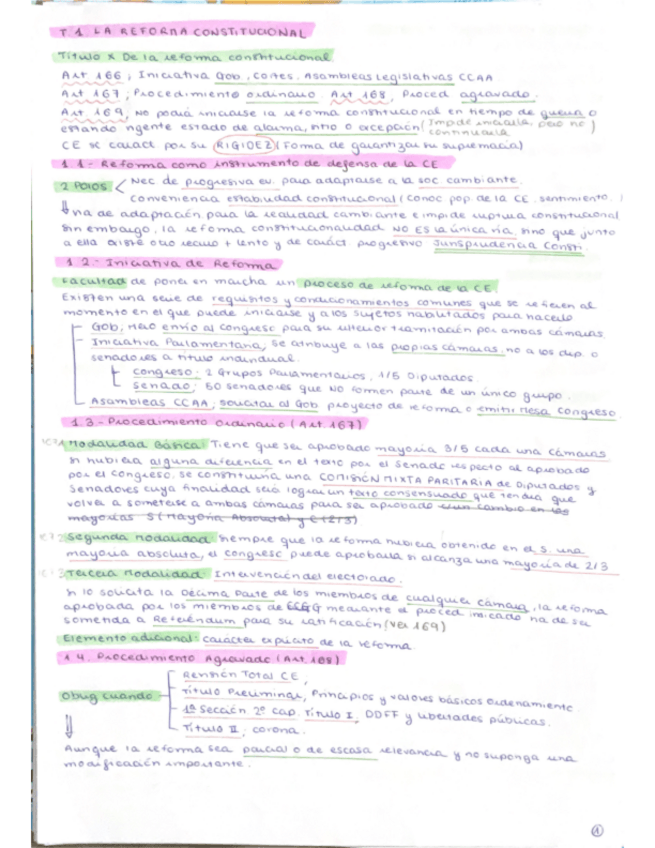 T.1. LA REFORMA CONSTITUCIONAL
Título X De la reforma constitucional
Art 166; Iniciativa Gob, Cortes, Asambleas Legislativas CCAA
Art 167; Procedimiento ordinario. Art 168, Proced agravado.
Art 169, No podrá iniciarse la reforma constitucional en tiempo de guerra o
estando vigente estado de alarma, sitio o excepción (Impide iniciarla, pero no continuarla)
CE se caract por su RIGIDEZ (Forma de garantizar su supremacía)
1.1.- Reforma como instrumento de defensa de la CE
2 Polos < Nec de progresiva ev. para adaptarse a la soc. cambiante.
Conveniencia estabilidad constitucional (conoc pop. de la CE, sentimiento,
⇓ Vía de adaptación para la realidad cambiante e impide ruptura constitucional
Sin embargo, la reforma constitucionalidad NO ES la única vía, sino que junto
a ella existe otro recurso + lento y de caráct progresivo Jurisprudencia Consti.
1.2.- Iniciativa de Reforma
Facultad de poner en marcha un proceso de reforma de la CE.
Existen una serie de requisitos y condicionamientos comunes que se refieren al
momento en el que puede iniciarse y a los sujetos habilitados para hacerlo
Gob, envío al Congreso para su ulterior tramitación por ambas cámaras.
Iniciativa Parlamentaria, se atribuye a las propias cámaras, no a los dip. o
senadores a título individual.
Congreso: 2 Grupos Parlamentarios, 1/5 Diputados.
Senado; 50 senadores que NO formen parte de un único grupo.
Asambleas CCAA; solicitar al Gob proyecto de reforma o emitir Mesa Congreso.
1.3- Procedimiento Ordinario (Art.167)
Modalidad Básica: Tiene que ser aprobado mayoría 3/5 cada una cámaras
Si hubiera alguna diferencia en el texto por el Senado respecto al aprobado
por el Congreso, se constituiría una COMISIÓN MIXTA PARITARIA de Diputados y
Senadores cuya finalidad será lograr un texto consensuado que tendrá que
volver a someterse a ambas cámaras para ser aprobado con cambio en las
mayorías S (Mayoría Absoluta) y C (2/3)
Segunda Modalidad: Siempre que la reforma hubiera obtenido en el S. una
mayoría absoluta, el Congreso puede aprobarla si alcanza una mayoría de 2/3
Tercera Modalidad: Intervención del electorado.
Si lo solicita la Décima Parte de los miembros de cualquier cámara, la reforma
aprobada por los miembros de G mediante el proced indicado ha de ser
sometida a Referéndum para su ratificación (Ver 169)
Elemento adicional: carácter explícito de la reforma.
1.4. Procedimiento Agravado (Art.168)
Revisión Total CE,
Título Preliminar, Principios y valores básicos ordenamiento.
Oblig cuando
1ª Sección 2º Cap. Título I, DDFF y libertades públicas.
Título II; corona.
⇓
Aunque la reforma sea parcial o de escasa relevancia y no suponga una
modificación importante.
1